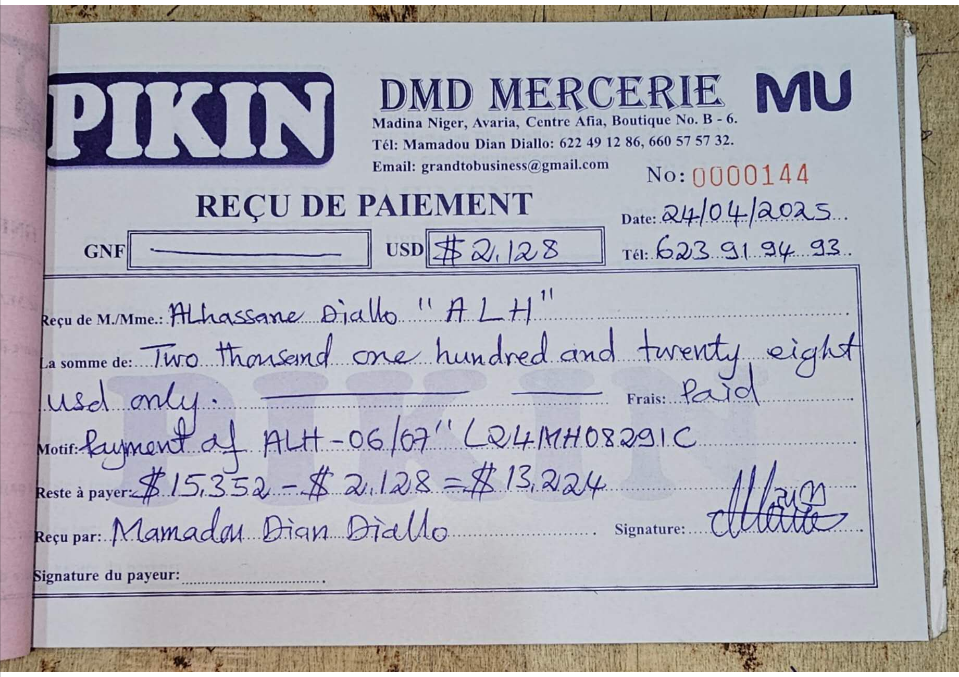 PIKIN
DMD MERCERIE MU
Madina Niger, Avaria, Centre Afia, Boutique No. B - 6.
Tél: Mamadou Dian Diallo: 622 49 12 86, 660 57 57 32.
Email: grandtobusiness@gmail.com
No: 0000144
REÇU DE PAIEMENT
Date: 24/04/2025
GNF USD $ 2.128 Tél: 623 91 94 93
Reçu de M./Mme.: ALhassane Diallo "ALH"
La somme de: Two thousand one hundred and twenty eight
usd only. Frais: Paid
Motif: Payment of ALH-06/07" L24MH08291C
Reste à payer: $ 15.352 - $ 2.128 = $ 13.224
Reçu par: Mamadou Dian Diallo Signature:
Signature du payeur:
PIKIN